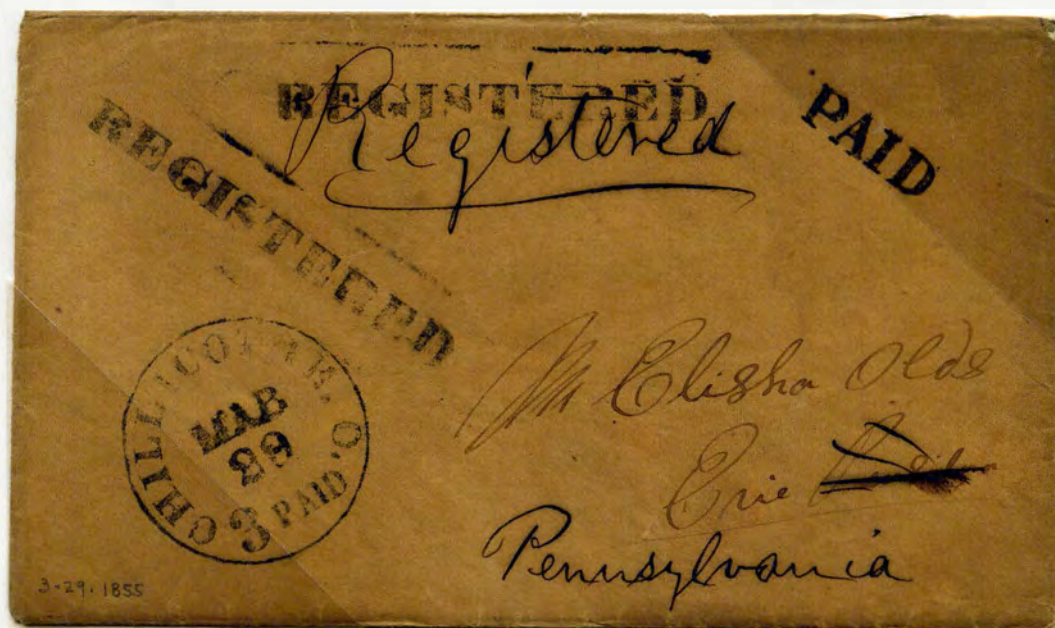 REGISTERED
Registered
PAID
REGISTERED
CHILLICOTHE, O.
MAR
29
3 PAID
Mr Elisha Olds
Erie
Pennsylvania
3-29-1855